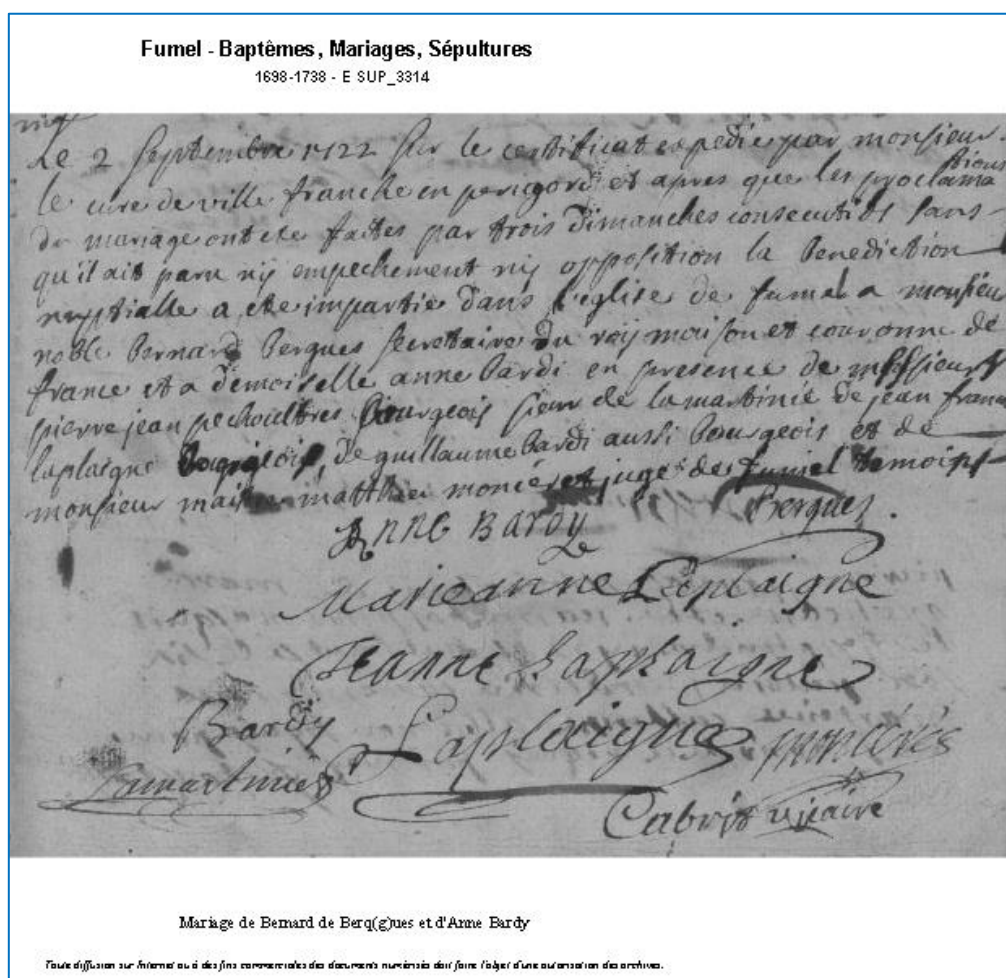 Fumel - Baptêmes, Mariages, Sépultures
1698-1738 - E SUP_3314
Le 2 Septembre 1722 sur le certificat expedie par monsieur
le cure de ville franche en perigord et apres que les proclama
tions
du mariage ont ete faites par trois dimanches consecutifs sans
qu'il ait paru nij empechement nij opposition la benediction
nuptialle a ete impartie dans l'eglise de fumel a monsieu
noble bernard bergues secretaire du roy maison et couronne de
france et a demoiselle anne bardi en presence de messieurs
pierre jean pechoultres bourgeois sieur de la martinie de jean franc
laplaigne bourgeois, de guillaume bardi aussi bourgeois et de
monsieur matthieu moncére et juge de fumel temoins
ANNE BARDY Bergues.
Marieanne Laplaigne
Jeanne Laplaigne
Bardy Laplaigne
Lamartinie
Cabrit vicaire
Mariage de Bernard de Berq(g)ues et d'Anne Bardy
Toute diffusion sur Internet ou à des fins commerciales des documents numérisés doit faire l'objet d'une autorisation des archives.